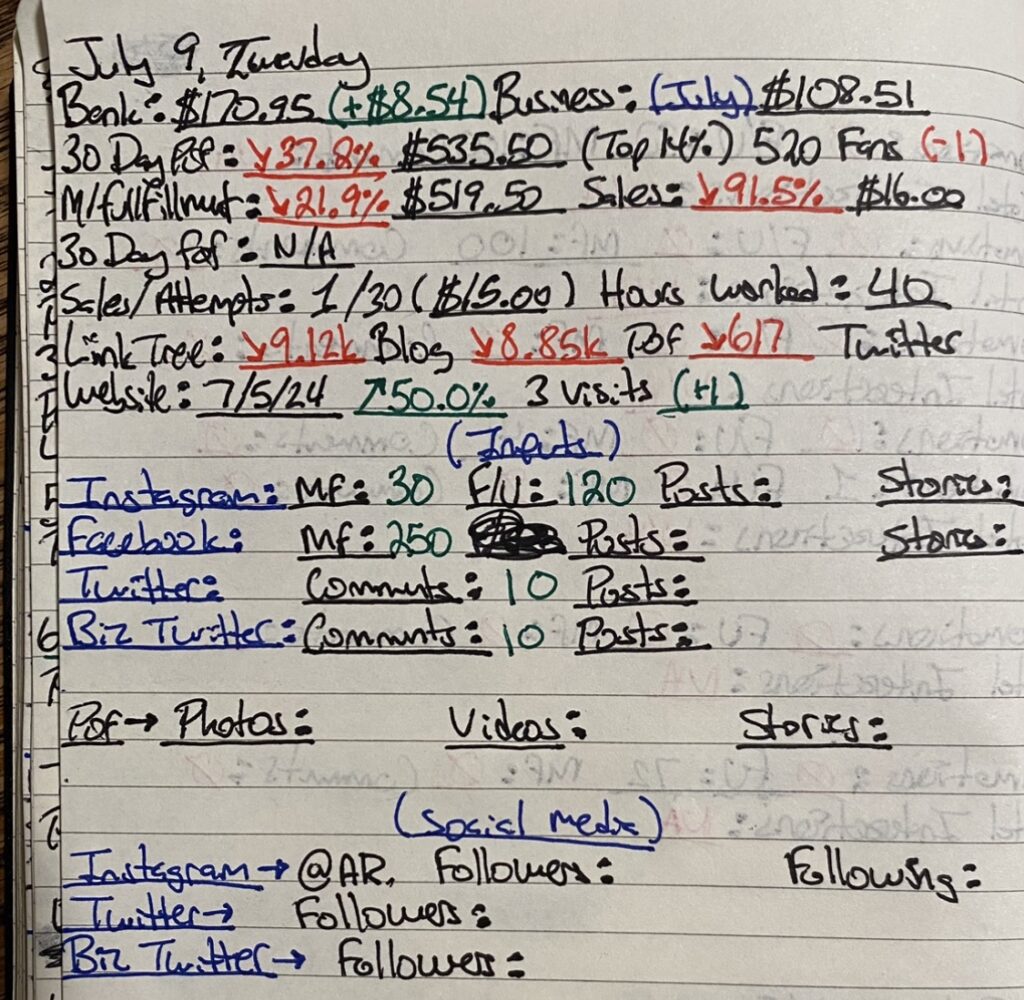 July 9, Tuesday
Bank: $170.95 (+$8.54) Business: (July) $108.51
30 Day Pof: ↘37.8% $535.50 (Top 14%) 520 Fans (-1)
M/fullfillmut: ↘21.9% $519.50 Sales: ↘91.5% $16.00
30 Day Pof: N/A
Sales/Attempts: 1/30 ($15.00) Hours worked: 40
Link Tree: ↘9.12k Blog ↘8.85k Pof ↘617 Twitter
Website: 7/5/24 ↗50.0% 3 visits (+1)
(Inputs)
Instagram: Mf: 30 F/U: 120 Posts: Stories:
Facebook: Mf: 250 Posts: Stories:
Twitter: Comments: 10 Posts:
Biz Twitter: Comments: 10 Posts:
Pof→ Photos: Videos: Stories:
(Social media)
Instagram→ @AR, Followers: Following:
Twitter→ Followers:
Biz Twitter→ Followers: